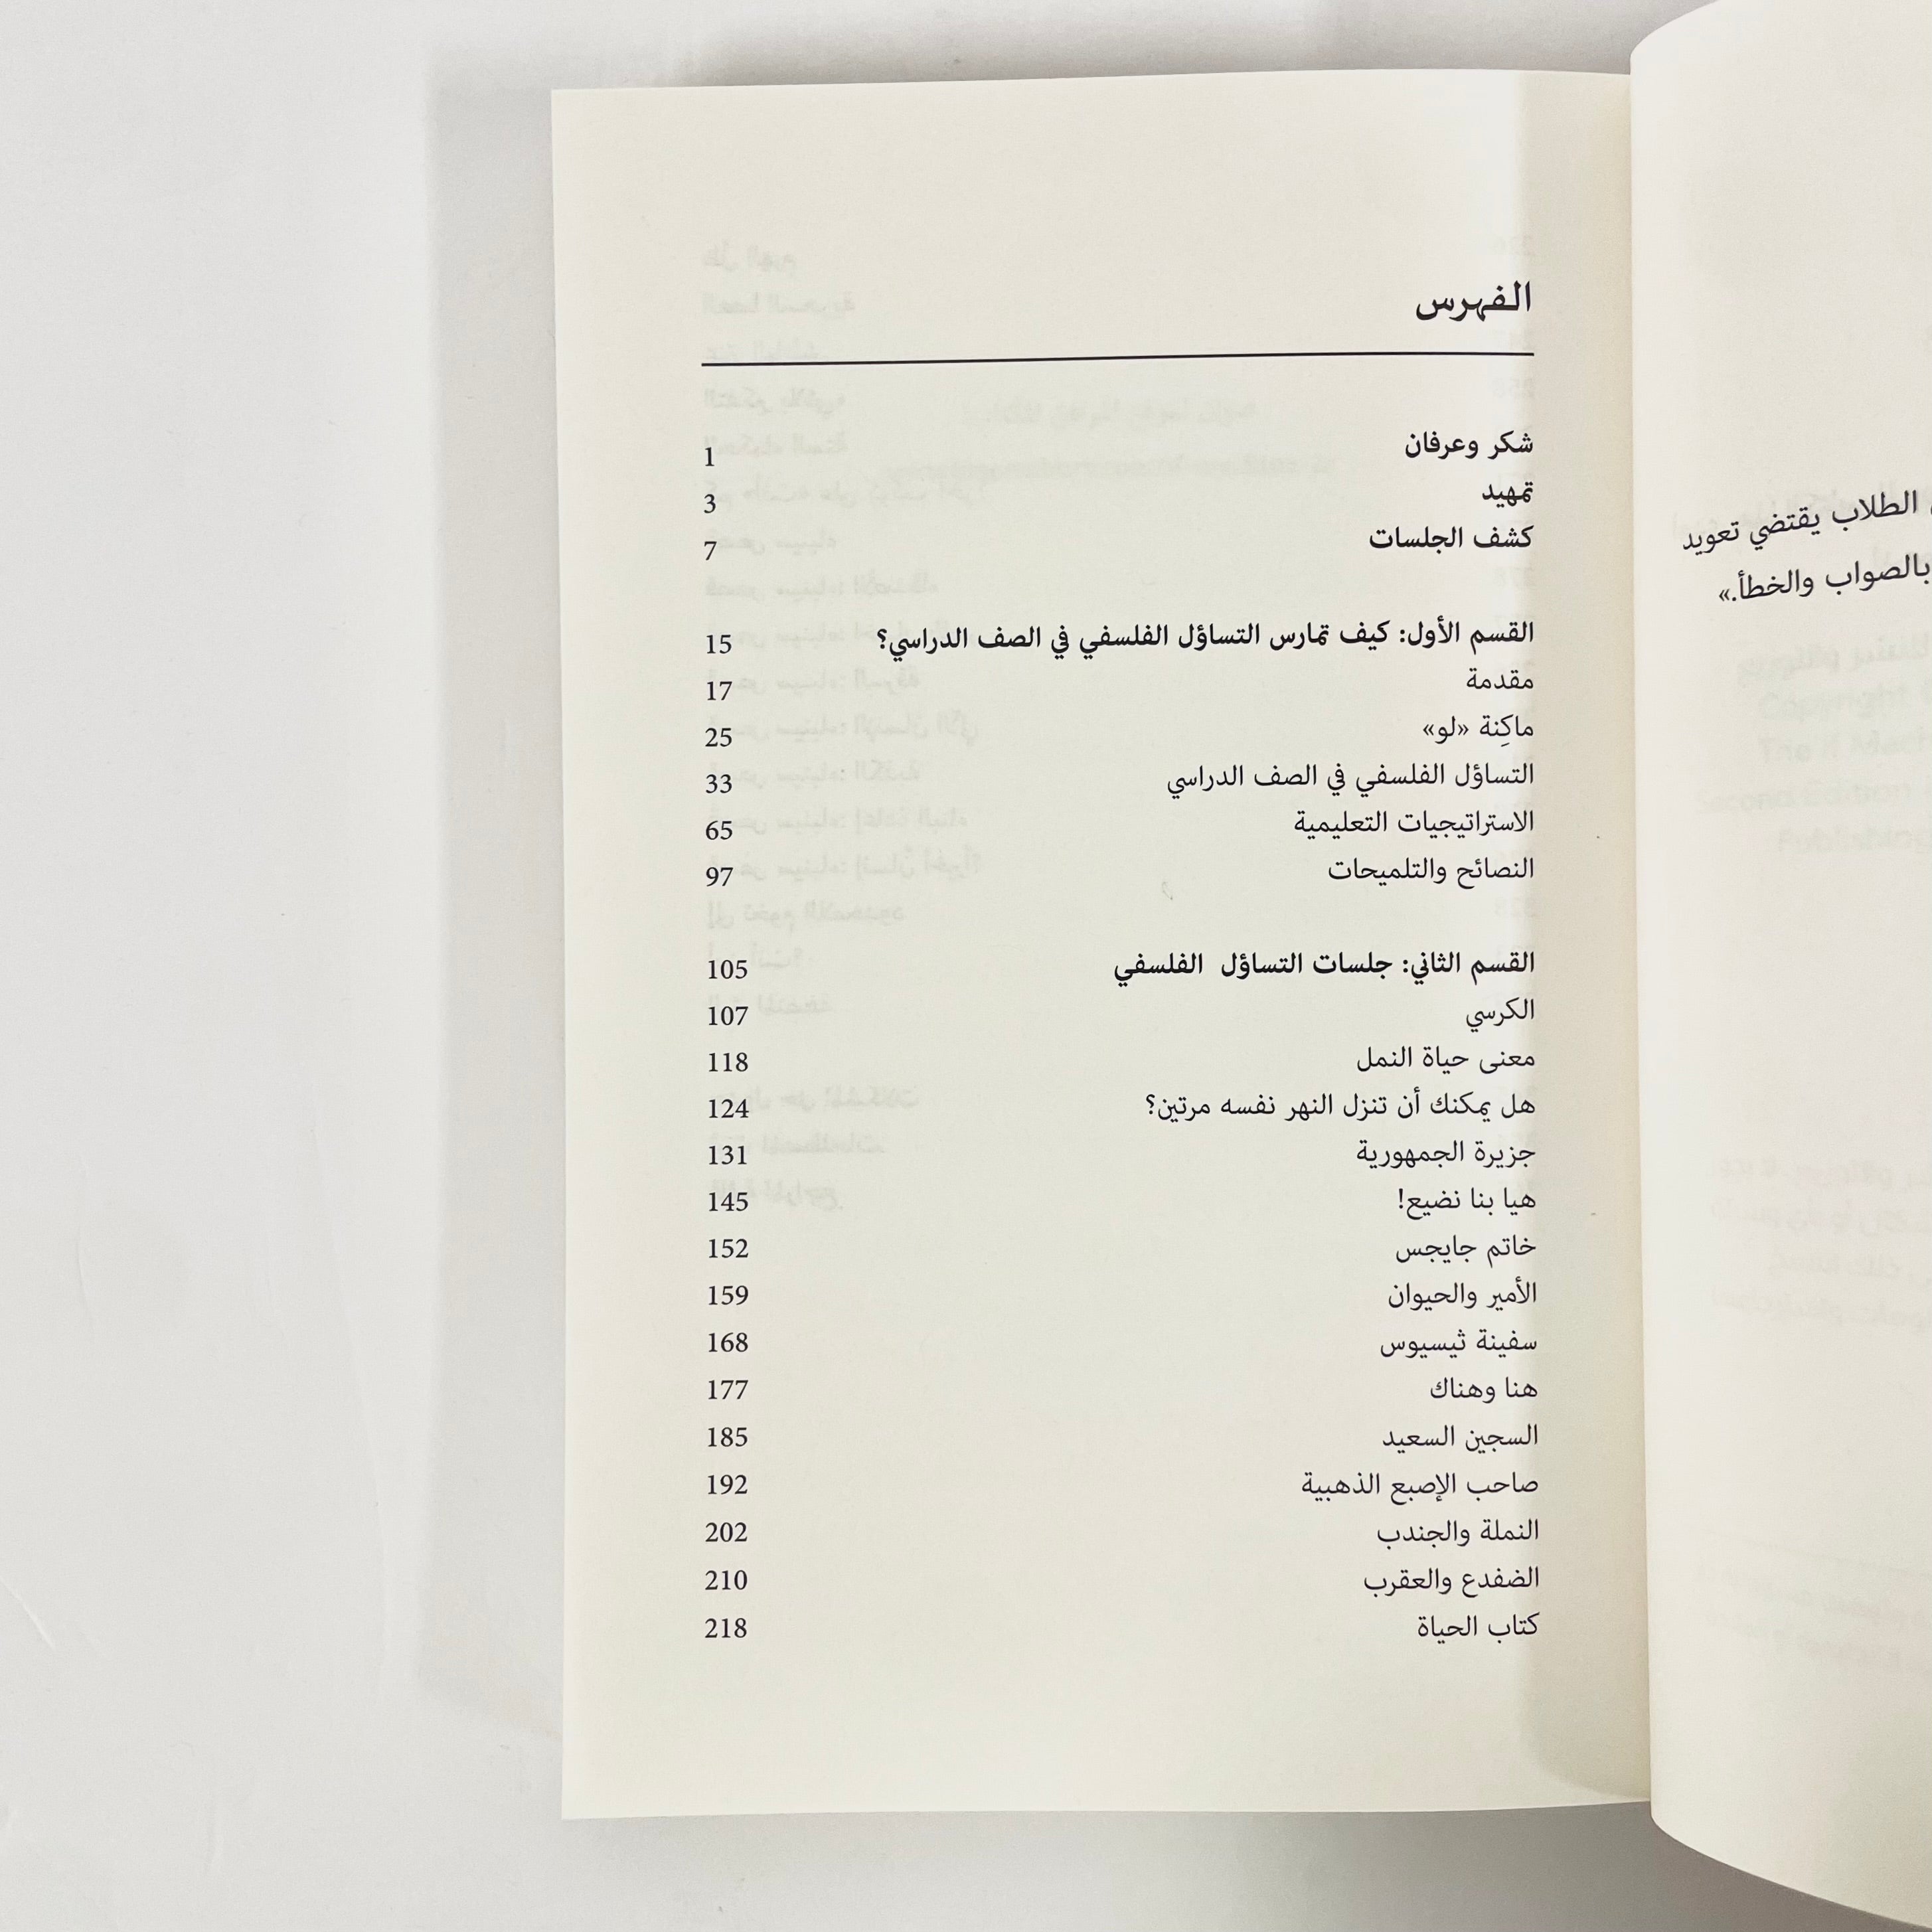 الطلاب يقتضي تعويد
بالصواب والخطأ.»
الفهرس
شكر وعرفان 1
تمهيد 3
كشف الجلسات 7
القسم الأول: كيف تمارس التساؤل الفلسفي في الصف الدراسي؟ 15
مقدمة 17
ماكِنة «لو» 25
التساؤل الفلسفي في الصف الدراسي 33
الاستراتيجيات التعليمية 65
النصائح والتلميحات 97
القسم الثاني: جلسات التساؤل الفلسفي 105
الكرسي 107
معنى حياة النمل 118
هل يمكنك أن تنزل النهر نفسه مرتين؟ 124
جزيرة الجمهورية 131
هيا بنا نضيع! 145
خاتم جايجس 152
الأمير والحيوان 159
سفينة ثيسيوس 168
هنا وهناك 177
السجين السعيد 185
صاحب الإصبع الذهبية 192
النملة والجندب 202
الضفدع والعقرب 210
كتاب الحياة 218